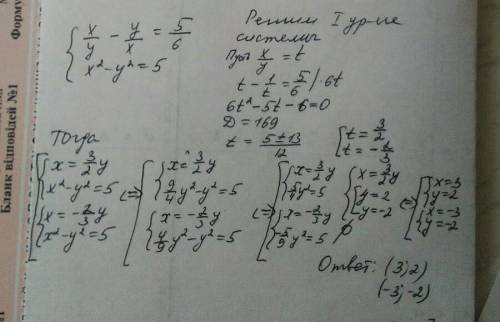 Бланк відповідей №1
Форму
{ x/y - y/x = 5/6
{ x² - y² = 5
Решим I ур-ие
системы
Пусть x/y = t
t - 1/t = 5/6 | · 6t
6t² - 5t - 6 = 0
D = 169
t = (5 ± 13)/12
[ t = 3/2
[ t = -2/3
Тогда
[ { x = 3/2 y
{ x² - y² = 5
{ x = -2/3 y
{ x² - y² = 5
⇔ [ { x = 3/2 y
{ 9/4 y² - y² = 5
{ x = -2/3 y
{ 4/9 y² - y² = 5
⇔ [ { x = 3/2 y
{ 5/4 y² = 5
{ x = -2/3 y
{ -5/9 y² = 5 ∅
{ x = 3/2 y
[ y = 2
[ y = -2
⇔ [ { x = 3
{ y = 2
{ x = -3
{ y = -2
Ответ: (3; 2)
(-3; -2)